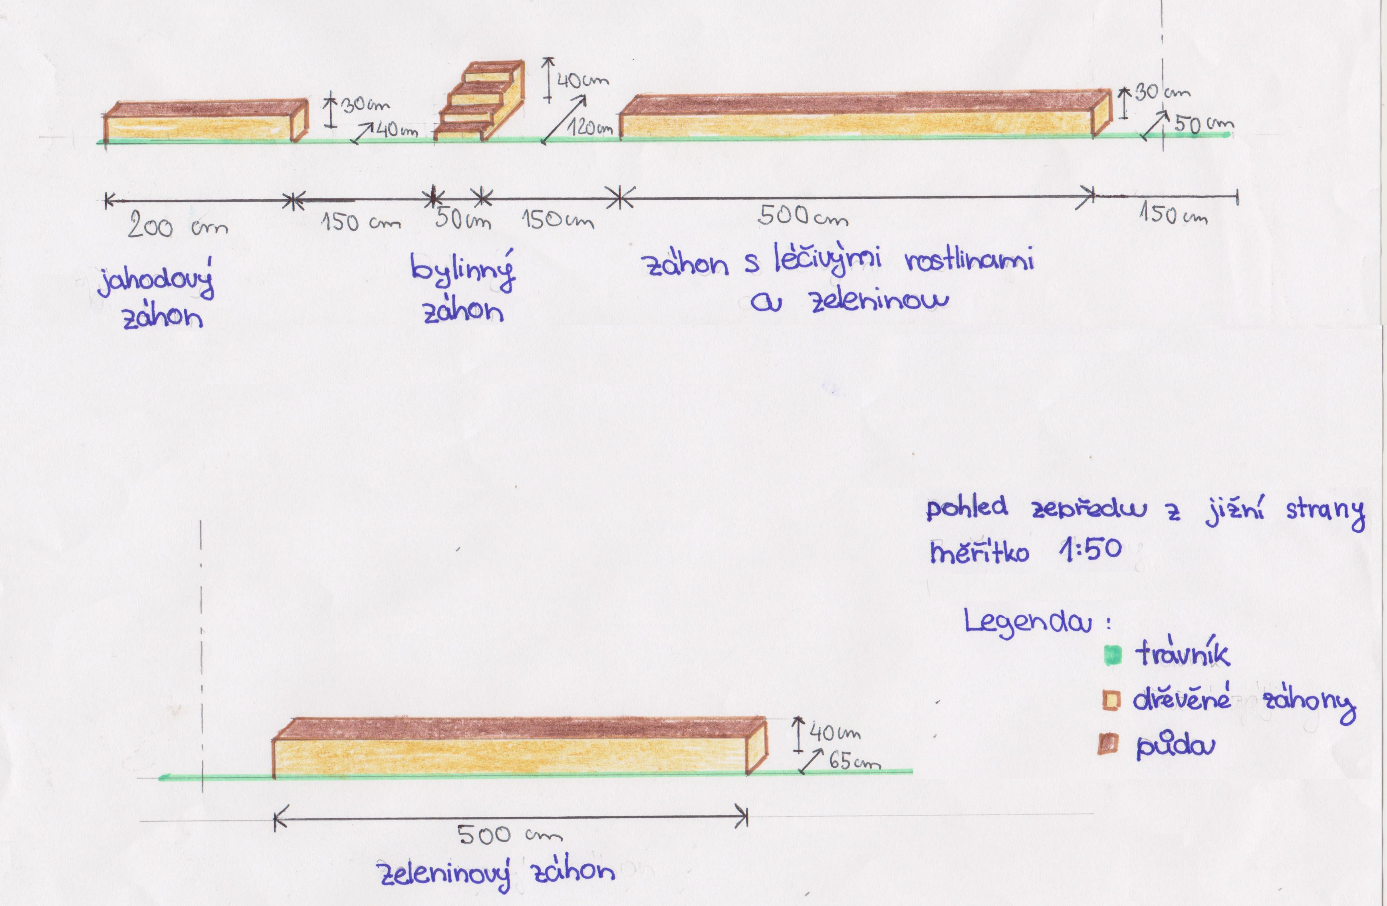 40cm
30cm
40cm
120cm
30cm
50cm
200 cm
150 cm
50cm
150cm
500cm
150cm
jahodový
záhon
bylinný
záhon
záhon s léčivými rostlinami
a zeleninou
pohled zepředu z jižní strany
měřítko 1:50
Legenda:
trávník
dřevěné záhony
půda
40cm
65cm
500 cm
zeleninový záhon